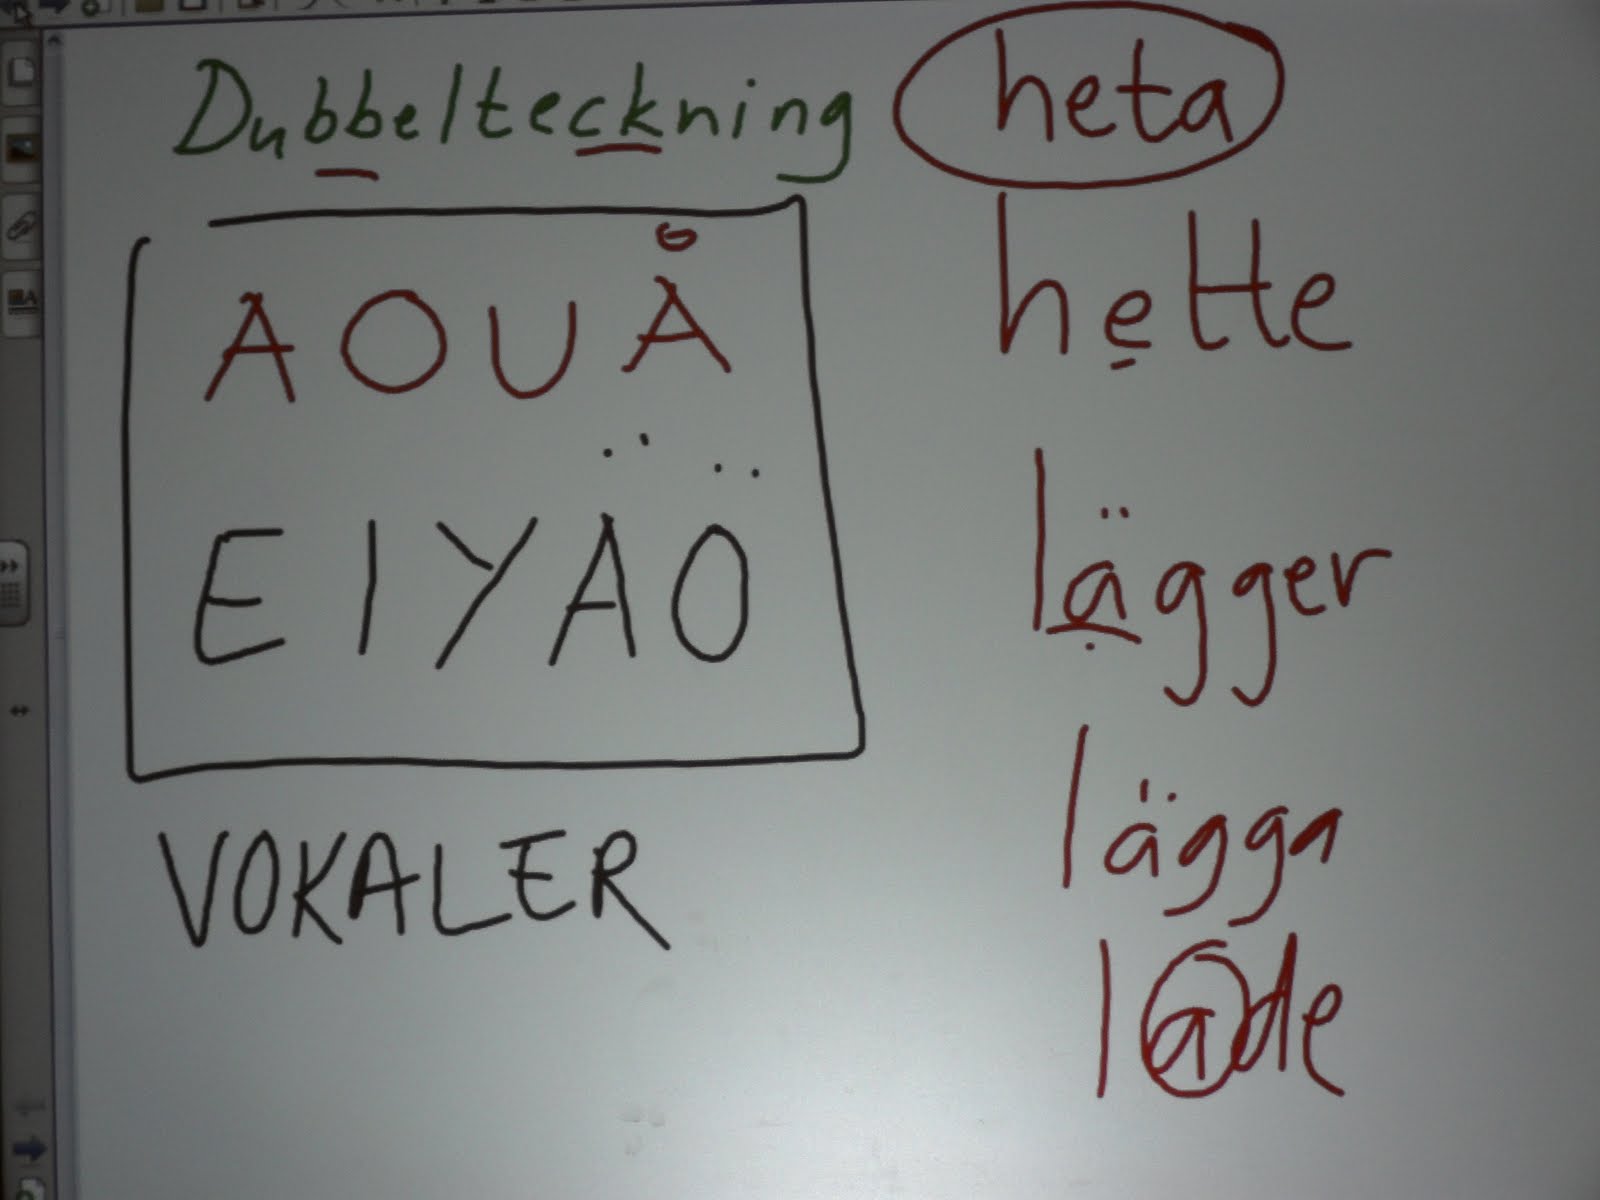 Dubbelteckning
AOUÅ
EIYÄÖ
VOKALER
heta
hette
lägger
lägga
lade